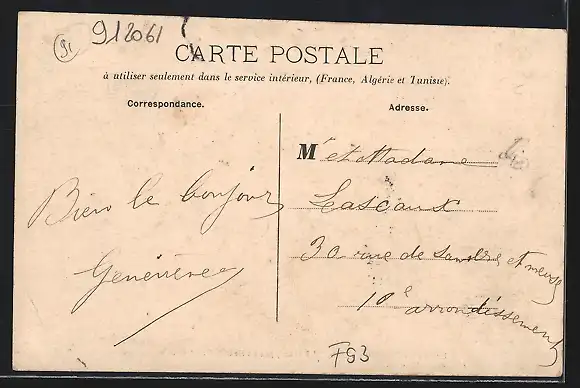 91
912061
CARTE POSTALE
à utiliser seulement dans le service intérieur, (France, Algérie et Tunisie).
Correspondance.
Adresse.
Bien le bonjour
Geneviève
M et Madame
Lascaux
30 rue de Sambre et meuse
10e arrondissement
F93